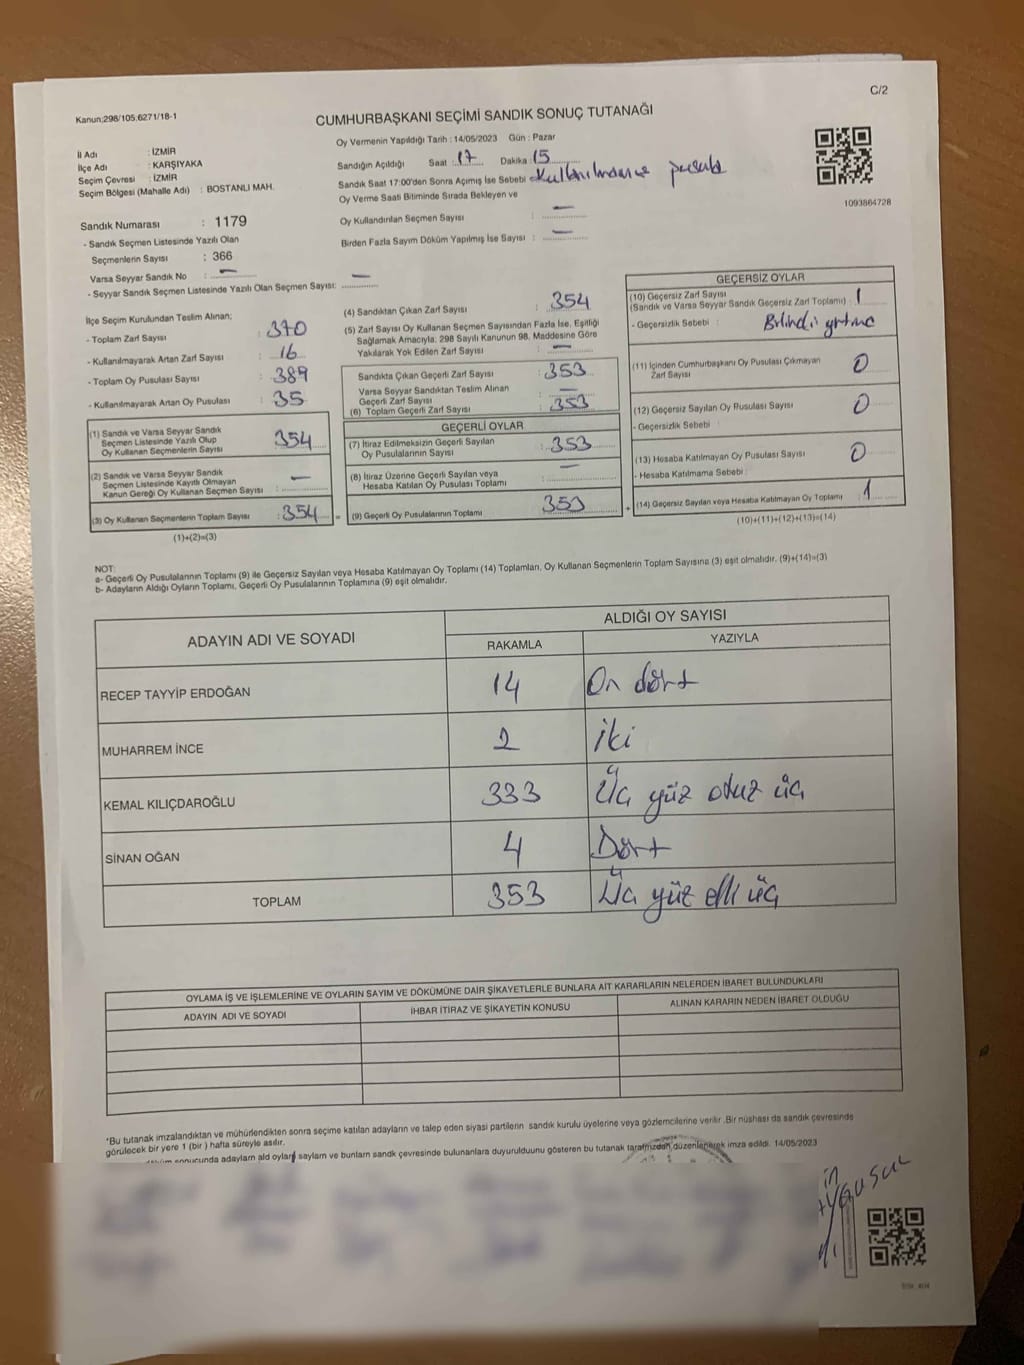 C/2
Kanun:298/105:6271/18-1
CUMHURBAŞKANI SEÇİMİ SANDIK SONUÇ TUTANAĞI
Oy Vermenin Yapıldığı Tarih : 14/05/2023 Gün : Pazar
İl Adı : İZMİR
İlçe Adı : KARŞIYAKA
Seçim Çevresi : İZMİR
Seçim Bölgesi (Mahalle Adı) : BOSTANLI MAH.
Sandığın Açıldığı Saat : 17 Dakika : 15
Sandık Saat 17:00'den Sonra Açımış İse Sebebi
Oy Verme Saati Bitiminde Sırada Bekleyen ve
Oy Kullandırılan Seçmen Sayısı : —
Birden Fazla Sayım Döküm Yapılmış İse Sayısı : —
1093864728
Sandık Numarası : 1179
- Sandık Seçmen Listesinde Yazılı Olan
Seçmenlerin Sayısı : 366
Varsa Seyyar Sandık No : —
- Seyyar Sandık Seçmen Listesinde Yazılı Olan Seçmen Sayısı: —
İlçe Seçim Kurulundan Teslim Alınan;
- Toplam Zarf Sayısı : 370
- Kullanılmayarak Artan Zarf Sayısı : 16
- Toplam Oy Pusulası Sayısı : 389
- Kullanılmayarak Artan Oy Pusulası : 35
(1) Sandık ve Varsa Seyyar Sandık
Seçmen Listesinde Yazılı Olup
Oy Kullanan Seçmenlerin Sayısı : 354
(2) Sandık ve Varsa Seyyar Sandık
Seçmen Listesinde Kayıtlı Olmayan
Kanun Gereği Oy Kullanan Seçmen Sayısı : —
(3) Oy Kullanan Seçmenlerin Toplam Sayısı : 354
(1)+(2)=(3)
(4) Sandıktan Çıkan Zarf Sayısı : 354
(5) Zarf Sayısı Oy Kullanan Seçmen Sayısından Fazla İse, Eşitliği
Sağlamak Amacıyla, 298 Sayılı Kanunun 98. Maddesine Göre
Yakılarak Yok Edilen Zarf Sayısı : —
Sandıkta Çıkan Geçerli Zarf Sayısı : 353
Varsa Seyyar Sandıktan Teslim Alınan
Geçerli Zarf Sayısı : —
(6) Toplam Geçerli Zarf Sayısı : 353
GEÇERLİ OYLAR
(7) İtiraz Edilmeksizin Geçerli Sayılan
Oy Pusulalarının Sayısı : 353
(8) İtiraz Üzerine Geçerli Sayılan veya
Hesaba Katılan Oy Pusulası Toplamı : —
= (9) Geçerli Oy Pusulalarının Toplamı 353
GEÇERSİZ OYLAR
(10) Geçersiz Zarf Sayısı
(Sandık ve Varsa Seyyar Sandık Geçersiz Zarf Toplamı) : 1
- Geçersizlik Sebebi :
(11) İçinden Cumhurbaşkanı Oy Pusulası Çıkmayan
Zarf Sayısı 0
(12) Geçersiz Sayılan Oy Pusulası Sayısı 0
- Geçersizlik Sebebi :
(13) Hesaba Katılmayan Oy Pusulası Sayısı 0
- Hesaba Katılmama Sebebi :
+ (14) Geçersiz Sayılan veya Hesaba Katılmayan Oy Toplamı 1
(10)+(11)+(12)+(13)=(14)
NOT:
a- Geçerli Oy Pusulalarının Toplamı (9) ile Geçersiz Sayılan veya Hesaba Katılmayan Oy Toplamı (14) Toplamları, Oy Kullanan Seçmenlerin Toplam Sayısına (3) eşit olmalıdır. (9)+(14)=(3)
b- Adayların Aldığı Oyların Toplamı, Geçerli Oy Pusulalarının Toplamına (9) eşit olmalıdır.
ADAYIN ADI VE SOYADI ALDIĞI OY SAYISI
RAKAMLA YAZIYLA
RECEP TAYYİP ERDOĞAN 14 On dört
MUHARREM İNCE 2 iki
KEMAL KILIÇDAROĞLU 333 Üç yüz otuz üç
SİNAN OĞAN 4 Dört
TOPLAM 353 Üç yüz elli üç
OYLAMA İŞ VE İŞLEMLERİNE VE OYLARIN SAYIM VE DÖKÜMÜNE DAİR ŞİKAYETLERLE BUNLARA AİT KARARLARIN NELERDEN İBARET BULUNDUKLARI
ADAYIN ADI VE SOYADI İHBAR İTİRAZ VE ŞİKAYETİN KONUSU ALINAN KARARIN NEDEN İBARET OLDUĞU
*Bu tutanak imzalandıktan ve mühürlendikten sonra seçime katılan adayların ve talep eden siyasi partilerin sandık kurulu üyelerine veya gözlemcilerine verilir .Bir nüshası da sandık çevresinde
görülecek bir yere 1 (bir ) hafta süreyle asılır.
sonucunda adayların ald oyları sayların ve bunların sandık çevresinde bulunanlara duyurulduunu gösteren bu tutanak tarafımızdan düzenlenerek imza edildi. 14/05/2023